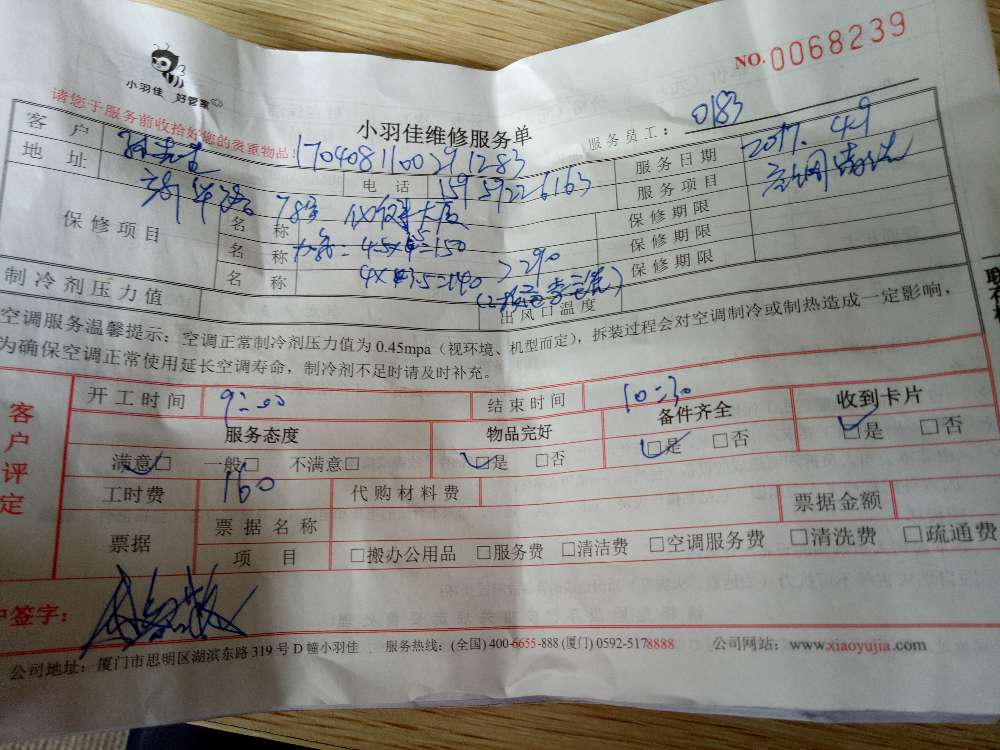 NO.0068239
小羽佳 好管家
请您于服务前收拾好您的贵重物品!
小羽佳维修服务单
服务员工: 0183
170408110029 1283
客户 孙先生 电话 15959226163 服务日期 2017.4.9
地址 78号 服务项目 空调清洗
保修项目 名称 保修期限
名称 4.5x 5=150 保修期限
名称 4x 3.5=140 >290 保修期限
制冷剂压力值 出风口温度
空调服务温馨提示:空调正常制冷剂压力值为 0.45mpa(视环境、机型而定),拆装过程会对空调制冷或制热造成一定影响,
为确保空调正常使用延长空调寿命,制冷剂不足时请及时补充。
客户评定
开工时间 9:00 结束时间 10:30
服务态度 物品完好 备件齐全 收到卡片
满意□ 一般□ 不满意□ □是 □否 □是 □否 □是 □否
工时费 160 代购材料费 票据金额
票据 票据名称
项目 □搬办公用品 □服务费 □清洁费 □空调服务费 □清洗费 □疏通费
户签字:
公司地址:厦门市思明区湖滨东路 319 号 D 幢小羽佳 服务热线:(全国) 400-6655-888 (厦门) 0592-5178888 公司网站:www.xiaoyujia.com